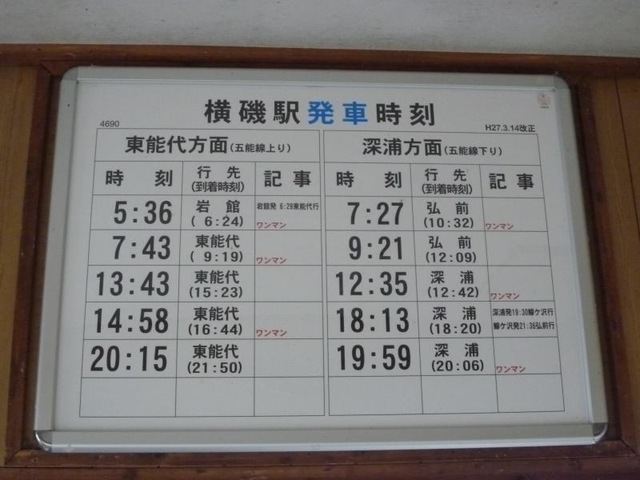 横磯駅発車時刻
4690
H27.3.14改正
東能代方面(五能線上り)
時刻 行先(到着時刻) 記事
5:36 岩館(6:24) 岩館発 6:29東能代行 ワンマン
7:43 東能代(9:19) ワンマン
13:43 東能代(15:23)
14:58 東能代(16:44) ワンマン
20:15 東能代(21:50)
深浦方面(五能線下り)
時刻 行先(到着時刻) 記事
7:27 弘前(10:32) ワンマン
9:21 弘前(12:09)
12:35 深浦(12:42) ワンマン
18:13 深浦(18:20) 深浦発19:30鰺ケ沢行
鰺ケ沢発21:36弘前行
19:59 深浦(20:06) ワンマン